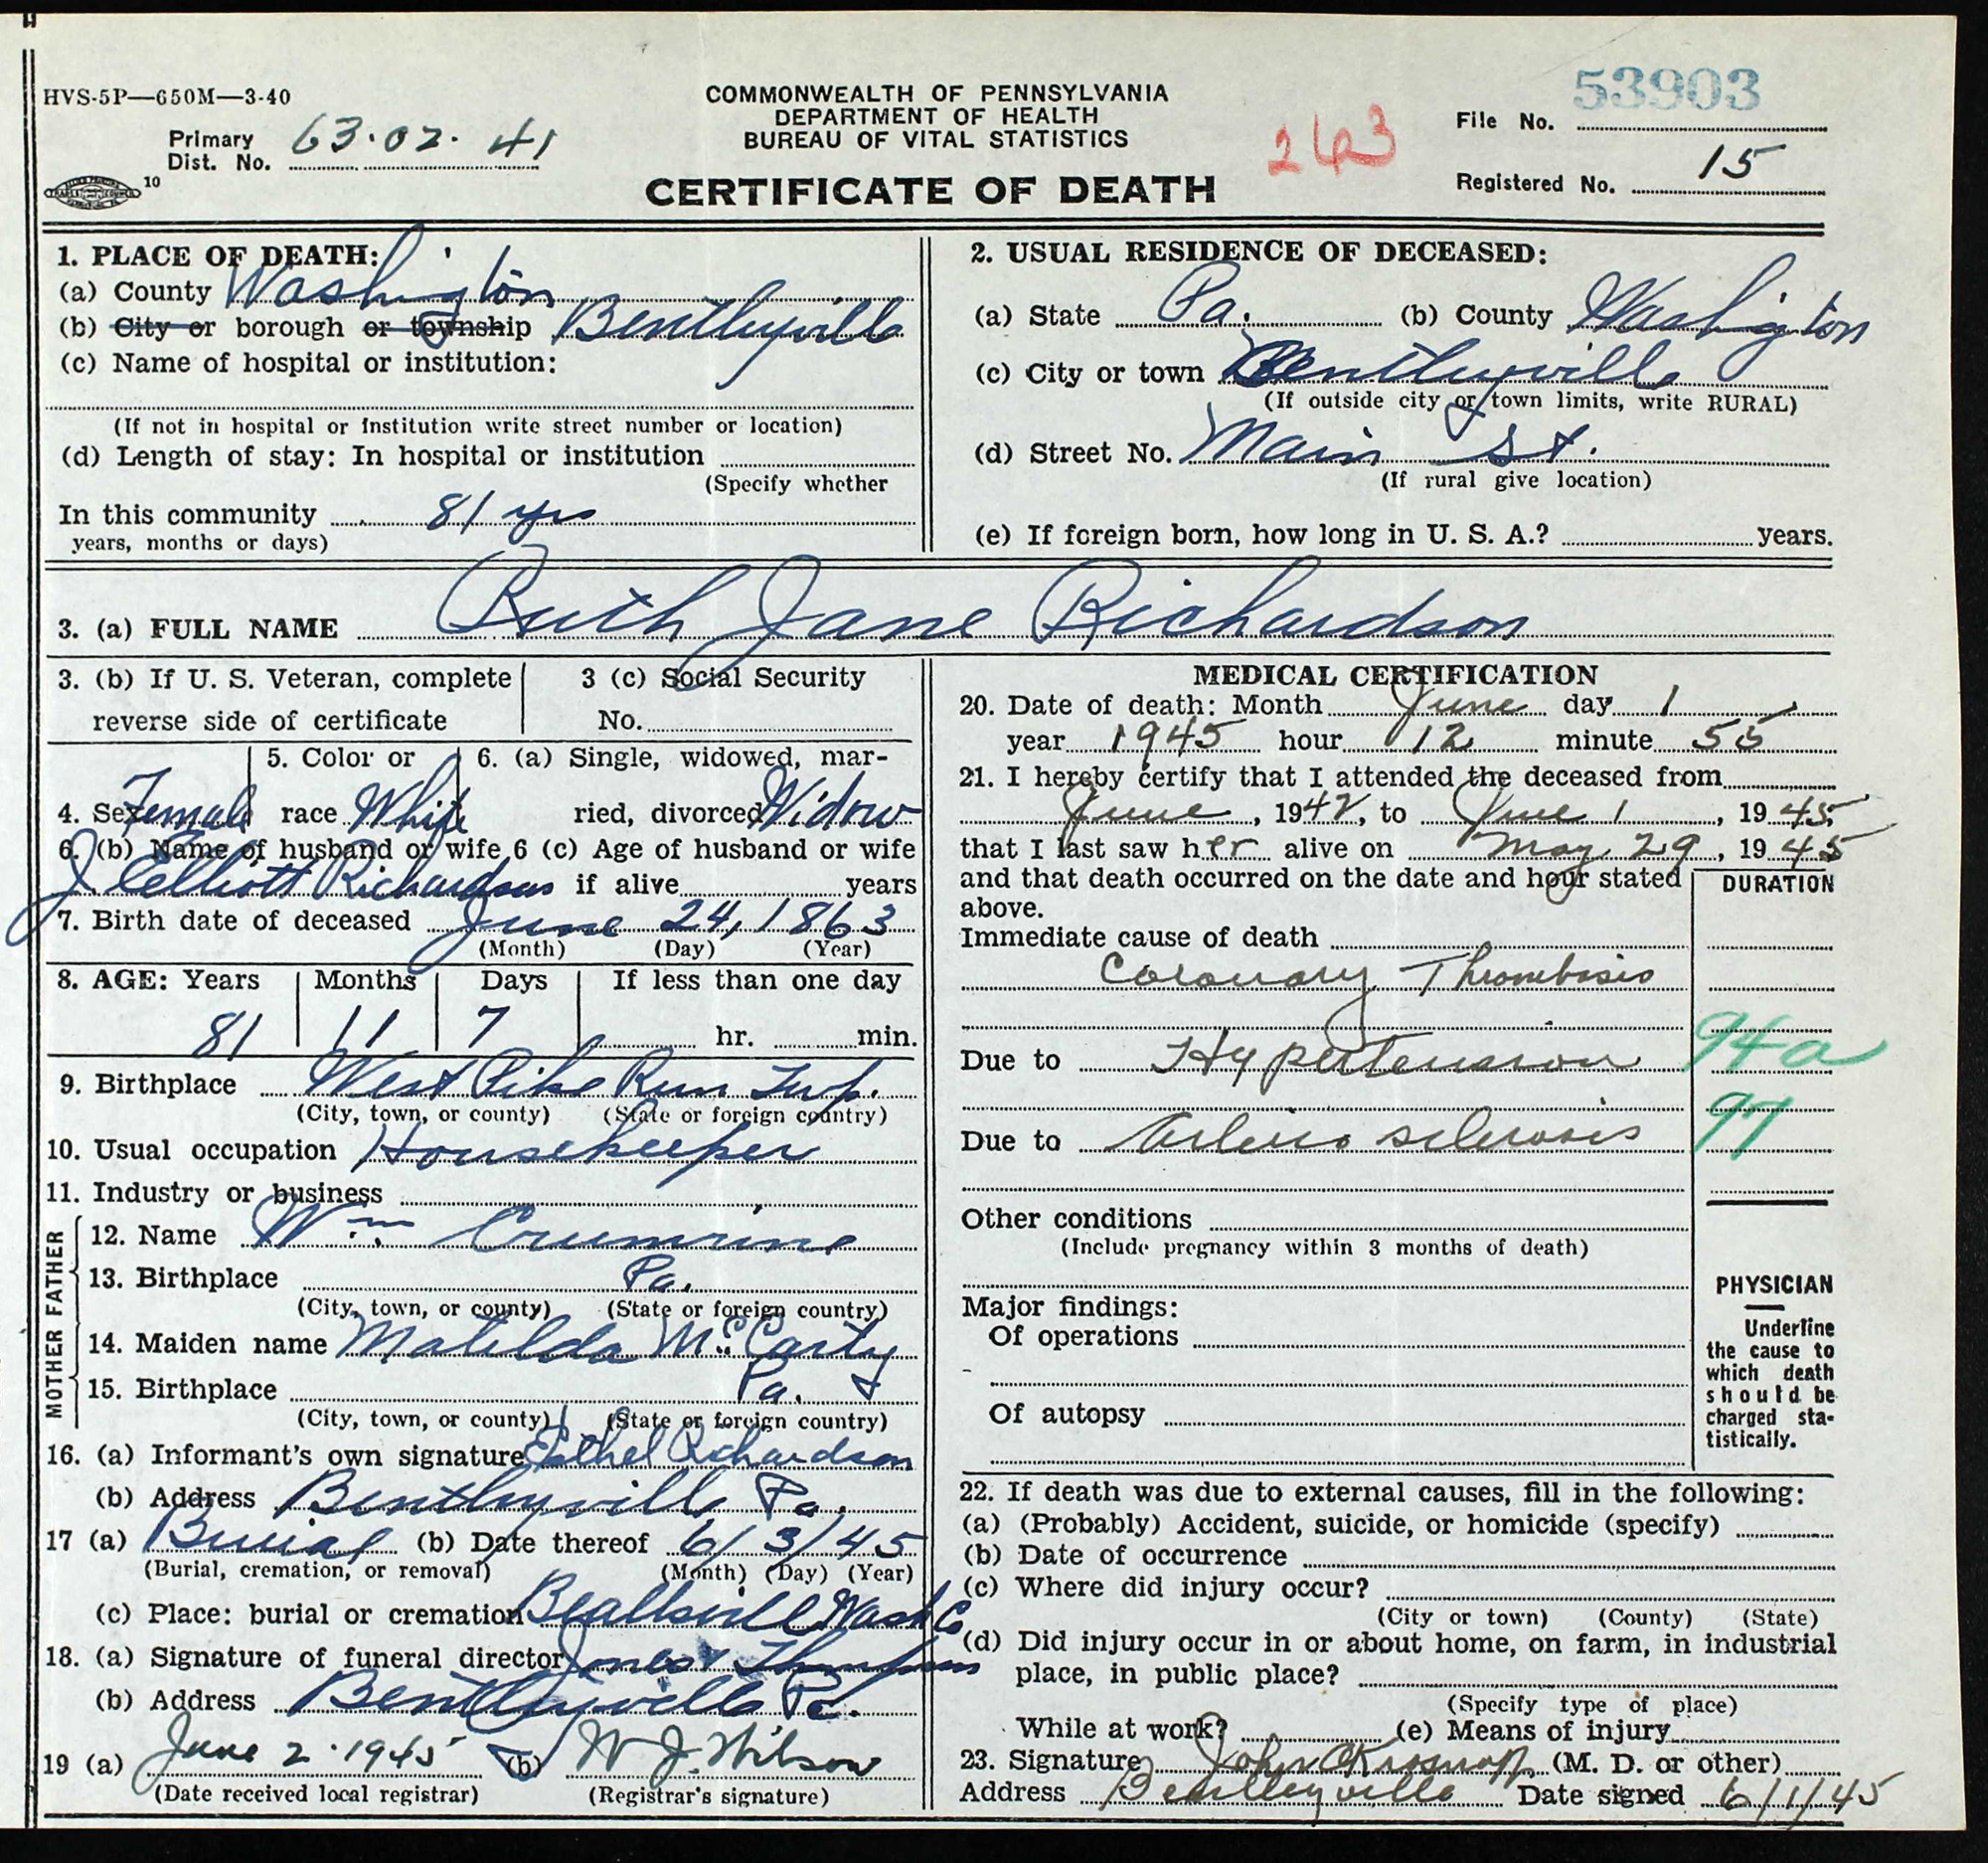 HVS-5P—650M—3-40
COMMONWEALTH OF PENNSYLVANIA
DEPARTMENT OF HEALTH
BUREAU OF VITAL STATISTICS
CERTIFICATE OF DEATH
Primary
Dist. No. 63.02.41
10
263
File No. 53903
Registered No. 15
1. PLACE OF DEATH:
(a) County Washington
(b) City or borough or township Bentleyville
(c) Name of hospital or institution:
(If not in hospital or institution write street number or location)
(d) Length of stay: In hospital or institution
(Specify whether
In this community 81 yrs
years, months or days)
2. USUAL RESIDENCE OF DECEASED:
(a) State Pa. (b) County Washington
(c) City or town Bentleyville
(If outside city or town limits, write RURAL)
(d) Street No. Main St.
(If rural give location)
(e) If foreign born, how long in U. S. A.? years.
3. (a) FULL NAME Ruth Jane Richardson
3. (b) If U. S. Veteran, complete
reverse side of certificate
3 (c) Social Security
No.
4. Sex Female
5. Color or
race White
6. (a) Single, widowed, mar-
ried, divorced Widow
6. (b) Name of husband or wife
J. Elliott Richardson
6 (c) Age of husband or wife
if alive years
7. Birth date of deceased June 24, 1863
(Month) (Day) (Year)
8. AGE: Years Months Days If less than one day
81 11 7 hr. min.
9. Birthplace West Pike Run Twp.
(City, town, or county) (State or foreign country)
10. Usual occupation Housekeeper
11. Industry or business
FATHER
12. Name Wm. Crumrine
13. Birthplace Pa.
(City, town, or county) (State or foreign country)
MOTHER
14. Maiden name Matilda McCarty
15. Birthplace Pa.
(City, town, or county) (State or foreign country)
16. (a) Informant's own signature Ethel Richardson
(b) Address Bentleyville, Pa.
17 (a) Burial (b) Date thereof 6/3/45
(Burial, cremation, or removal) (Month) (Day) (Year)
(c) Place: burial or cremation Beallsville Wash Co
18. (a) Signature of funeral director Jones & Thompson
(b) Address Bentleyville Pa.
19 (a) June 2 . 1945 (b) W J. Wilson
(Date received local registrar) (Registrar's signature)
MEDICAL CERTIFICATION
20. Date of death: Month June day 1
year 1945 hour 12 minute 55
21. I hereby certify that I attended the deceased from
June, 1942, to June 1, 1945,
that I last saw her alive on May 29, 1945
and that death occurred on the date and hour stated
above.
DURATION
Immediate cause of death
Coronary Thrombosis
Due to Hypertension 94a
Due to Arterio sclerosis 97
Other conditions
(Include pregnancy within 3 months of death)
Major findings:
Of operations
Of autopsy
PHYSICIAN
Underline
the cause to
which death
should be
charged sta-
tistically.
22. If death was due to external causes, fill in the following:
(a) (Probably) Accident, suicide, or homicide (specify)
(b) Date of occurrence
(c) Where did injury occur?
(City or town) (County) (State)
(d) Did injury occur in or about home, on farm, in industrial
place, in public place?
(Specify type of place)
While at work? (e) Means of injury
23. Signature John (M. D. or other)
Address Bentleyville Date signed 6/1/45